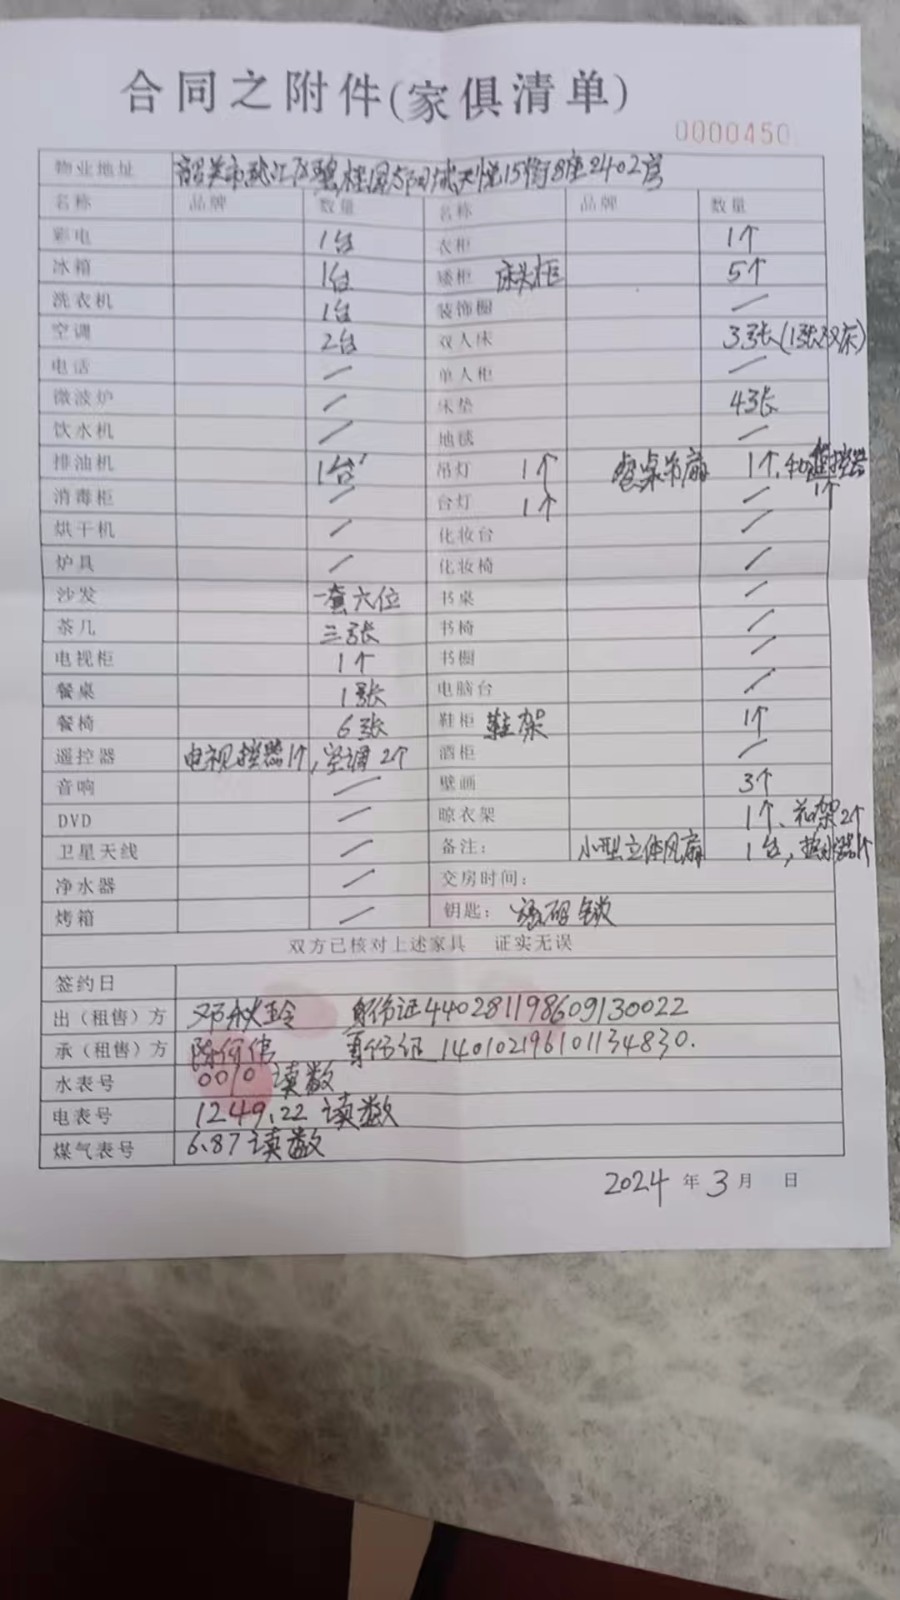 合同之附件(家俱清单)
0000450
物业地址 韶关市浈江区碧桂园太阳城天悦15街8座2402房
名称 品牌 数量 名称 品牌 数量
彩电 1台 衣柜 1个
冰箱 1台 矮柜 床头柜 5个
洗衣机 1台 装饰橱 /
空调 2台 双人床 3张(1张双床)
电话 / 单人柜 /
微波炉 / 床垫 4张
饮水机 / 地毯 /
排油机 1台 吊灯 1个 餐桌吊扇 1个,和遥控器1个
消毒柜 / 台灯 1个 /
烘干机 / 化妆台 /
炉具 / 化妆椅 /
沙发 一套六位 书桌 /
茶几 三张 书椅 /
电视柜 1个 书橱 /
餐桌 1张 电脑台 /
餐椅 6张 鞋柜 鞋架 1个
遥控器 电视控器1个,空调2个 酒柜 /
音响 / 壁画 3个
DVD / 晾衣架 1个、花架2个
卫星天线 / 备注: 小型立体风扇 1台,热水器1个
净水器 / 交房时间:
烤箱 / 钥匙: 密码锁
双方已核对上述家具 证实无误
签约日
出(租售)方 邓秋玲 身份证440281198609130022
承(租售)方 身份证140102196101134830.
水表号 0010读数
电表号 1249.22读数
煤气表号 6.87读数
2024年3月 日